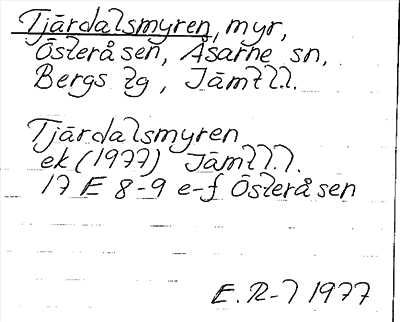 Tjärdalsmyren, myr,
Österåsen, Åsarne sn,
Bergs tg, Jämtl.l.
Tjärdalsmyren
ek (1977) Jämtl.l.
17 E 8-9 e-f Österåsen
E. R-l 1977